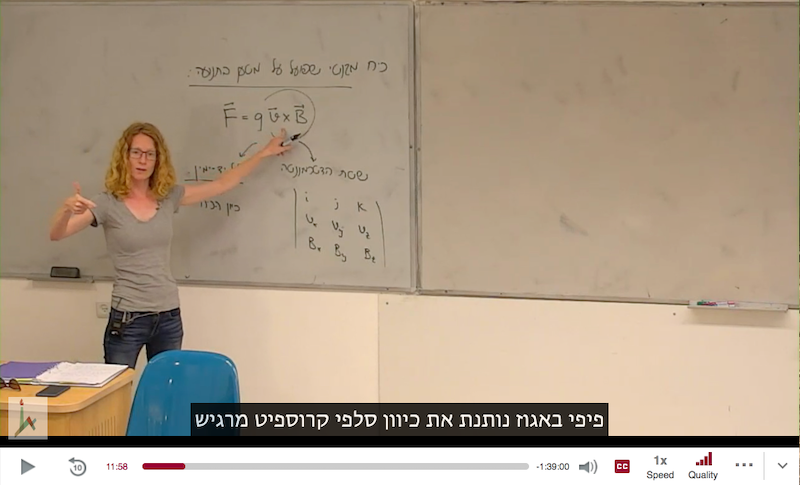 כח מגנטי שפועל על מטען בתנועה:
F⃗ = q v⃗ × B⃗
יד-ימין:
שיטת הדטרמיננטה
כוון הכח
i j k
vₓ vᵧ v_z
Bₓ Bᵧ B_z
פיפי באגוז נותנת את כיוון סלפי קרוספיט מרגיש
10
11:58
-1:39:00
CC
1x
Speed
Quality